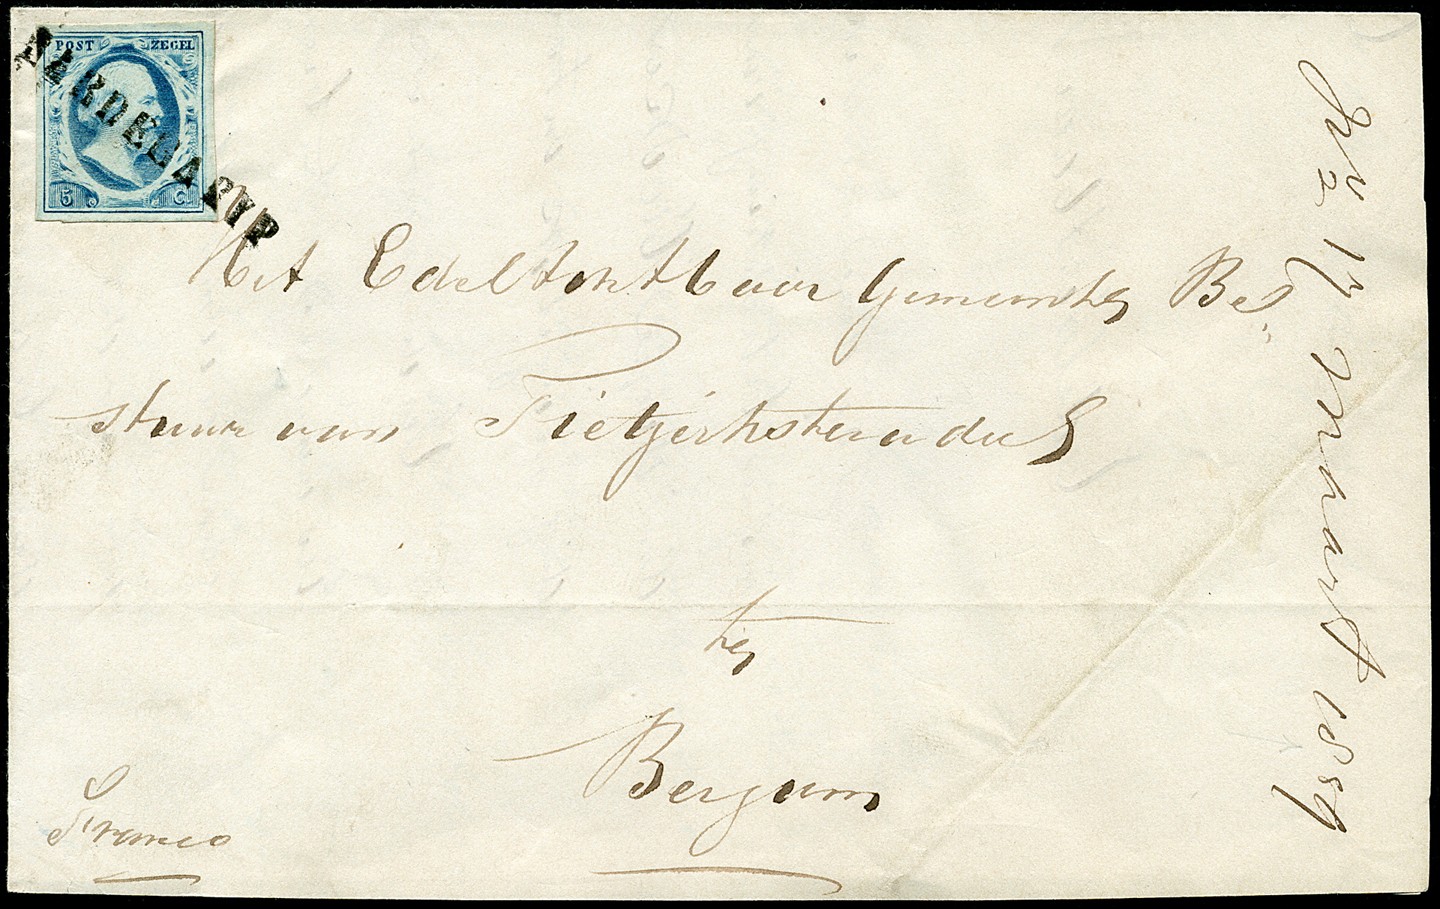 POST ZEGEL
HARDEGARYP
5 C.
Het Edel Achtbaar Gemeente Be
stuur van Tietjerksteradeel
te
Bergum
Franco
2 17 Maart 1859